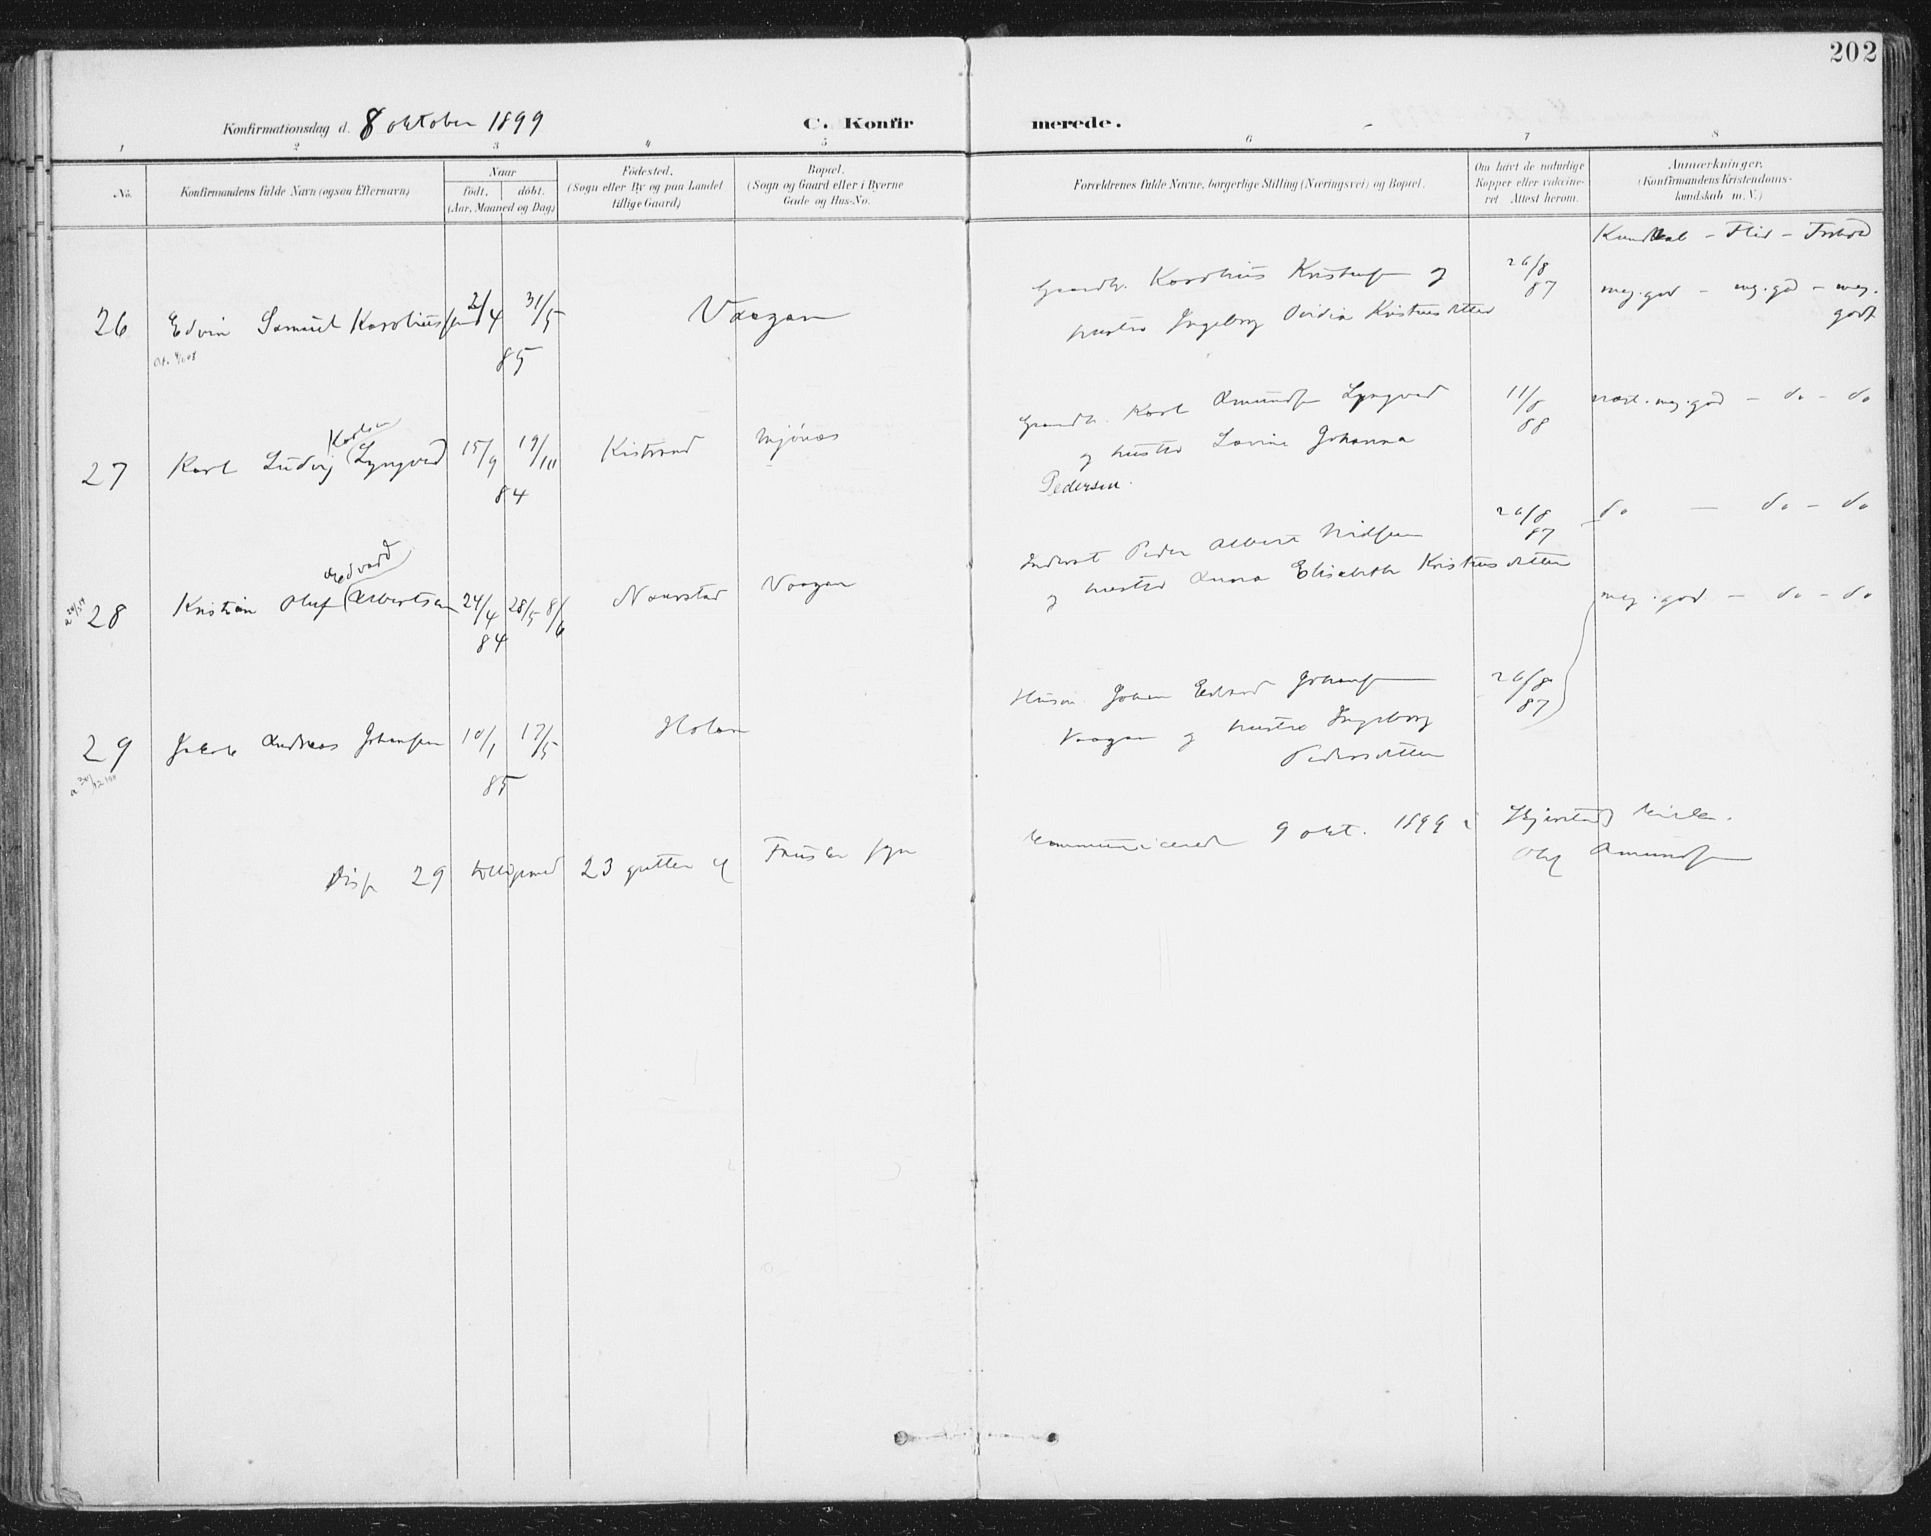 202
Konfirmationsdag d. 8 oktober 1899
C. Konfirmerede.
1 2 3 4 5 6 7 8
No.
Konfirmandens fulde Navn (ogsaa Efternavn)
Naar
födt. döbt.
(Aar, Maaned og Dag)
Födested.
(Sogn eller By og paa Landet
tillige Gaard)
Bopæl.
(Sogn og Gaard eller i Byerne
Gade og Hus-No.
Forældrenes fulde Navne, borgerlige Stilling (Næringsvei) og Bopæl.
Om havt de naturlige
Kopper eller vakcine-
ret Attest herom.
Anmærkninger.
(Konfirmandens Kristendoms-
kundskab m. V.)
Kundskab - Flid - Forhold
26 Edvin Samuel Karoliussen 2/4 31/5 85 Vaagan
Gaardb. Karolius Kristensen og
hustru Ingeborg Ovidia Kristensdatter
26/8 87
meg. god - meg. god - meg. godt
27 Karl Ludvig (Karlsen Lyngved) 15/9 19/10 84 Kistrand Mjönes
Gaardb. Karl Amundsen Lyngved
og hustru Lovine Johanna
Pedersen.
11/8 88
næst. meg. god - do - do
28 Kristian Oluf (Edvard) Albertsen 24/4 28/5 8/6 84 Naurstad Vaagan
Inderst Peder Albert Nilsen
og hustru Anna Elisabeth Kristensdatter
26/8 87
do - do - do
29 Jakob Andreas Johansen 10/1 17/5 85 Holan
Husm. Johan Edvard Johansen
Vaagan og hustru Ingeborg
Pedersdatter
26/8 87
meg. god - do - do
29 23 gutter og
kommunicerede 9 okt. 1899 i Skjerstad kirke.
Oluf Amundsen